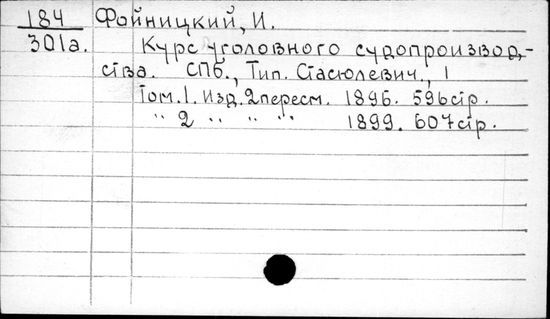 184 Фойницкий, И.
301а. Курс уголовного судопроизвод,-
ства. СПб., Тип. Стасюлевич., 1
Том.1. Изд. 2 пересм. 1896. 596стр.
" 2 " " " 1899. 607стр.